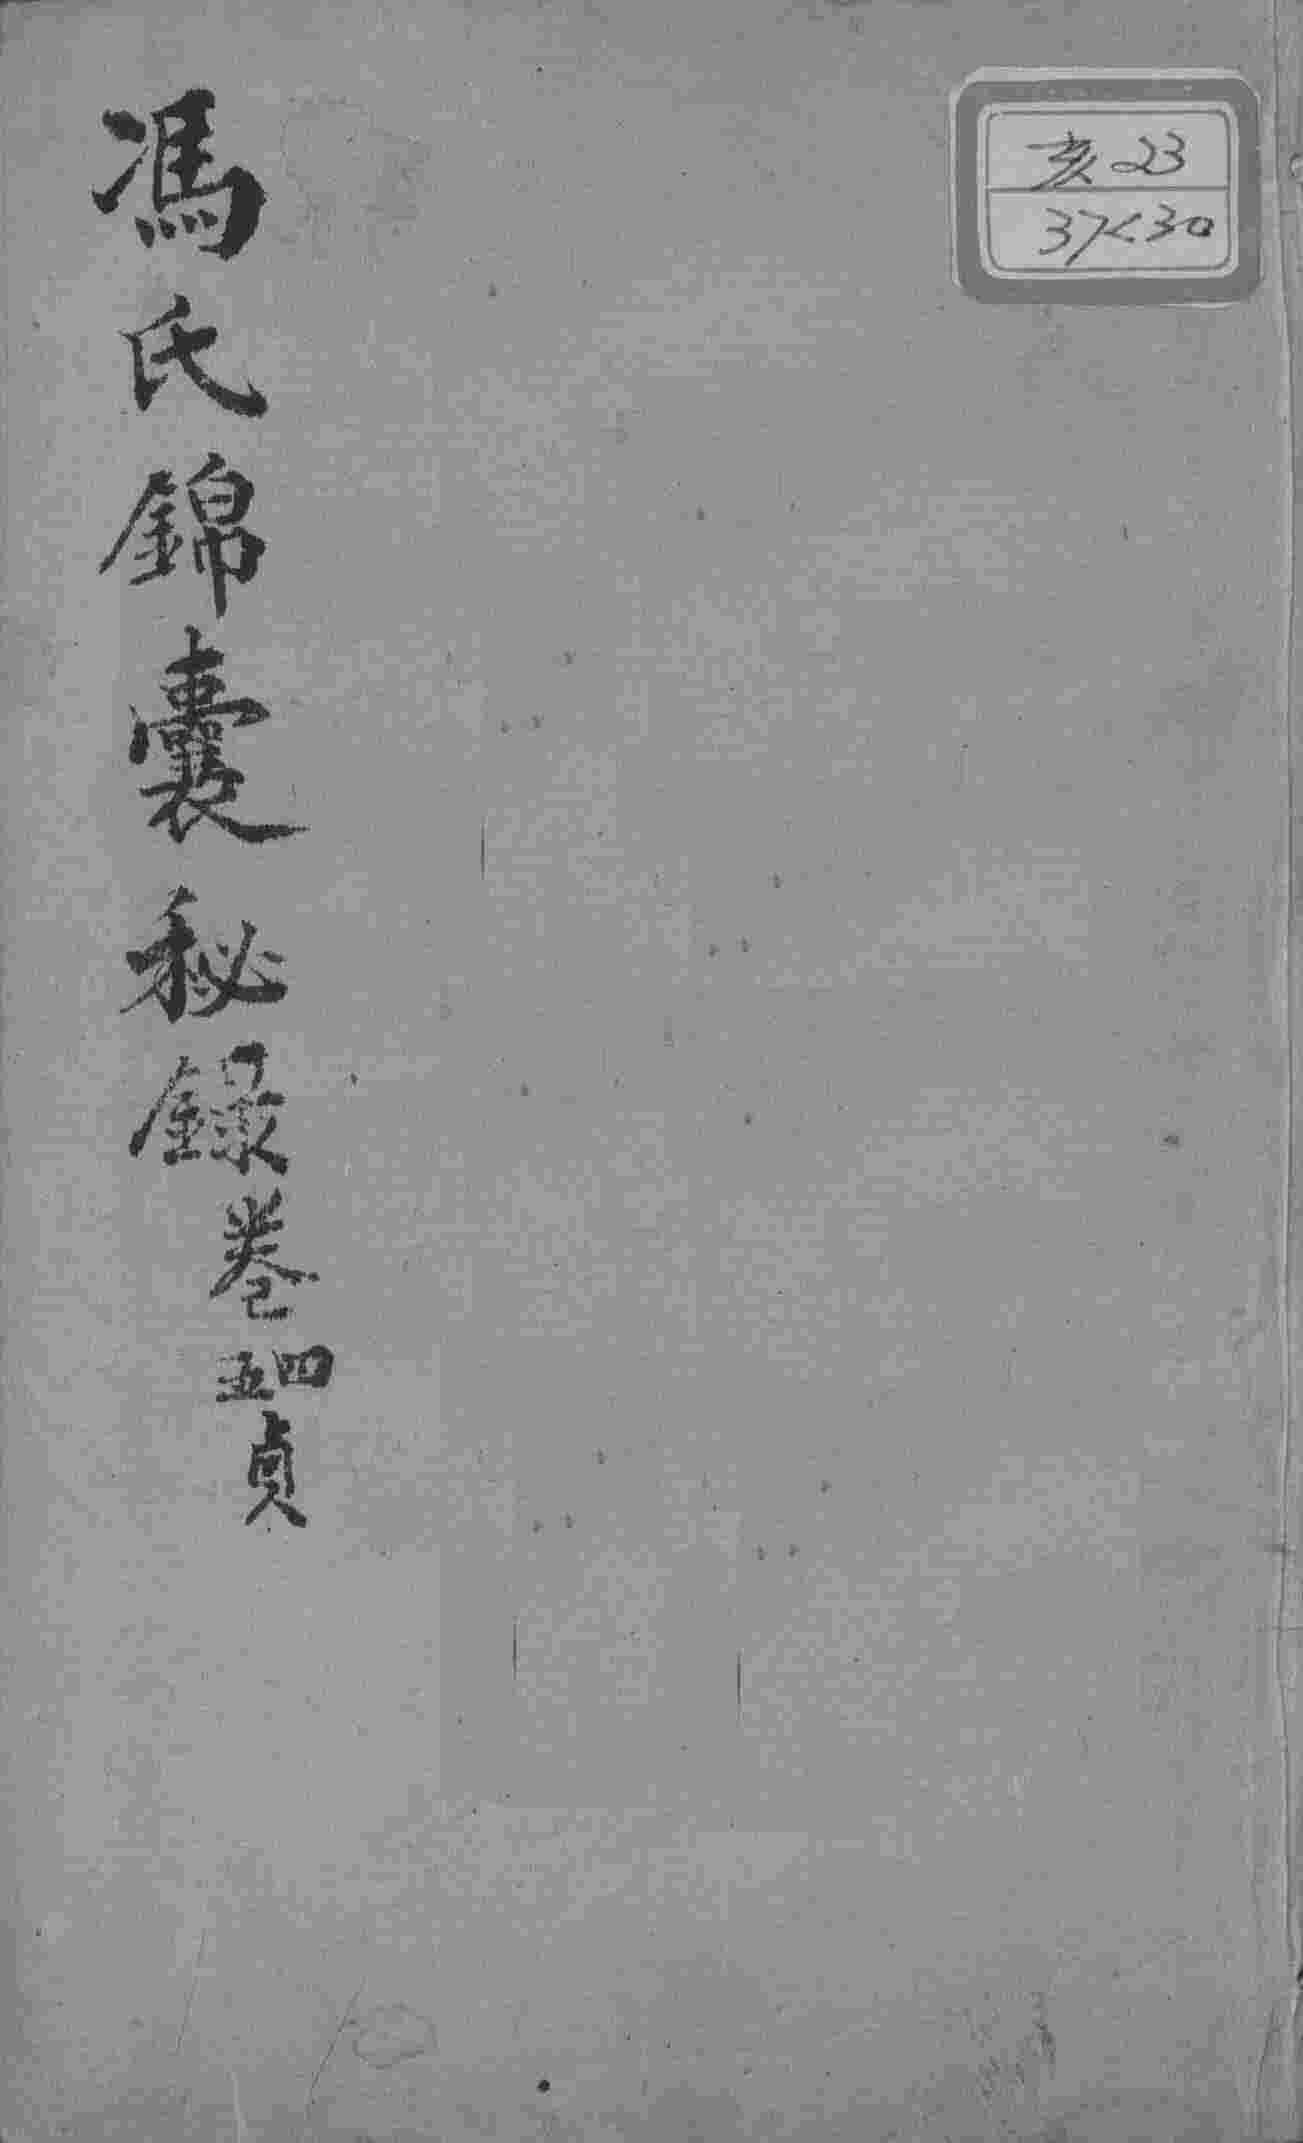 亥23
37<30
馮氏錦囊秘録卷四五貞